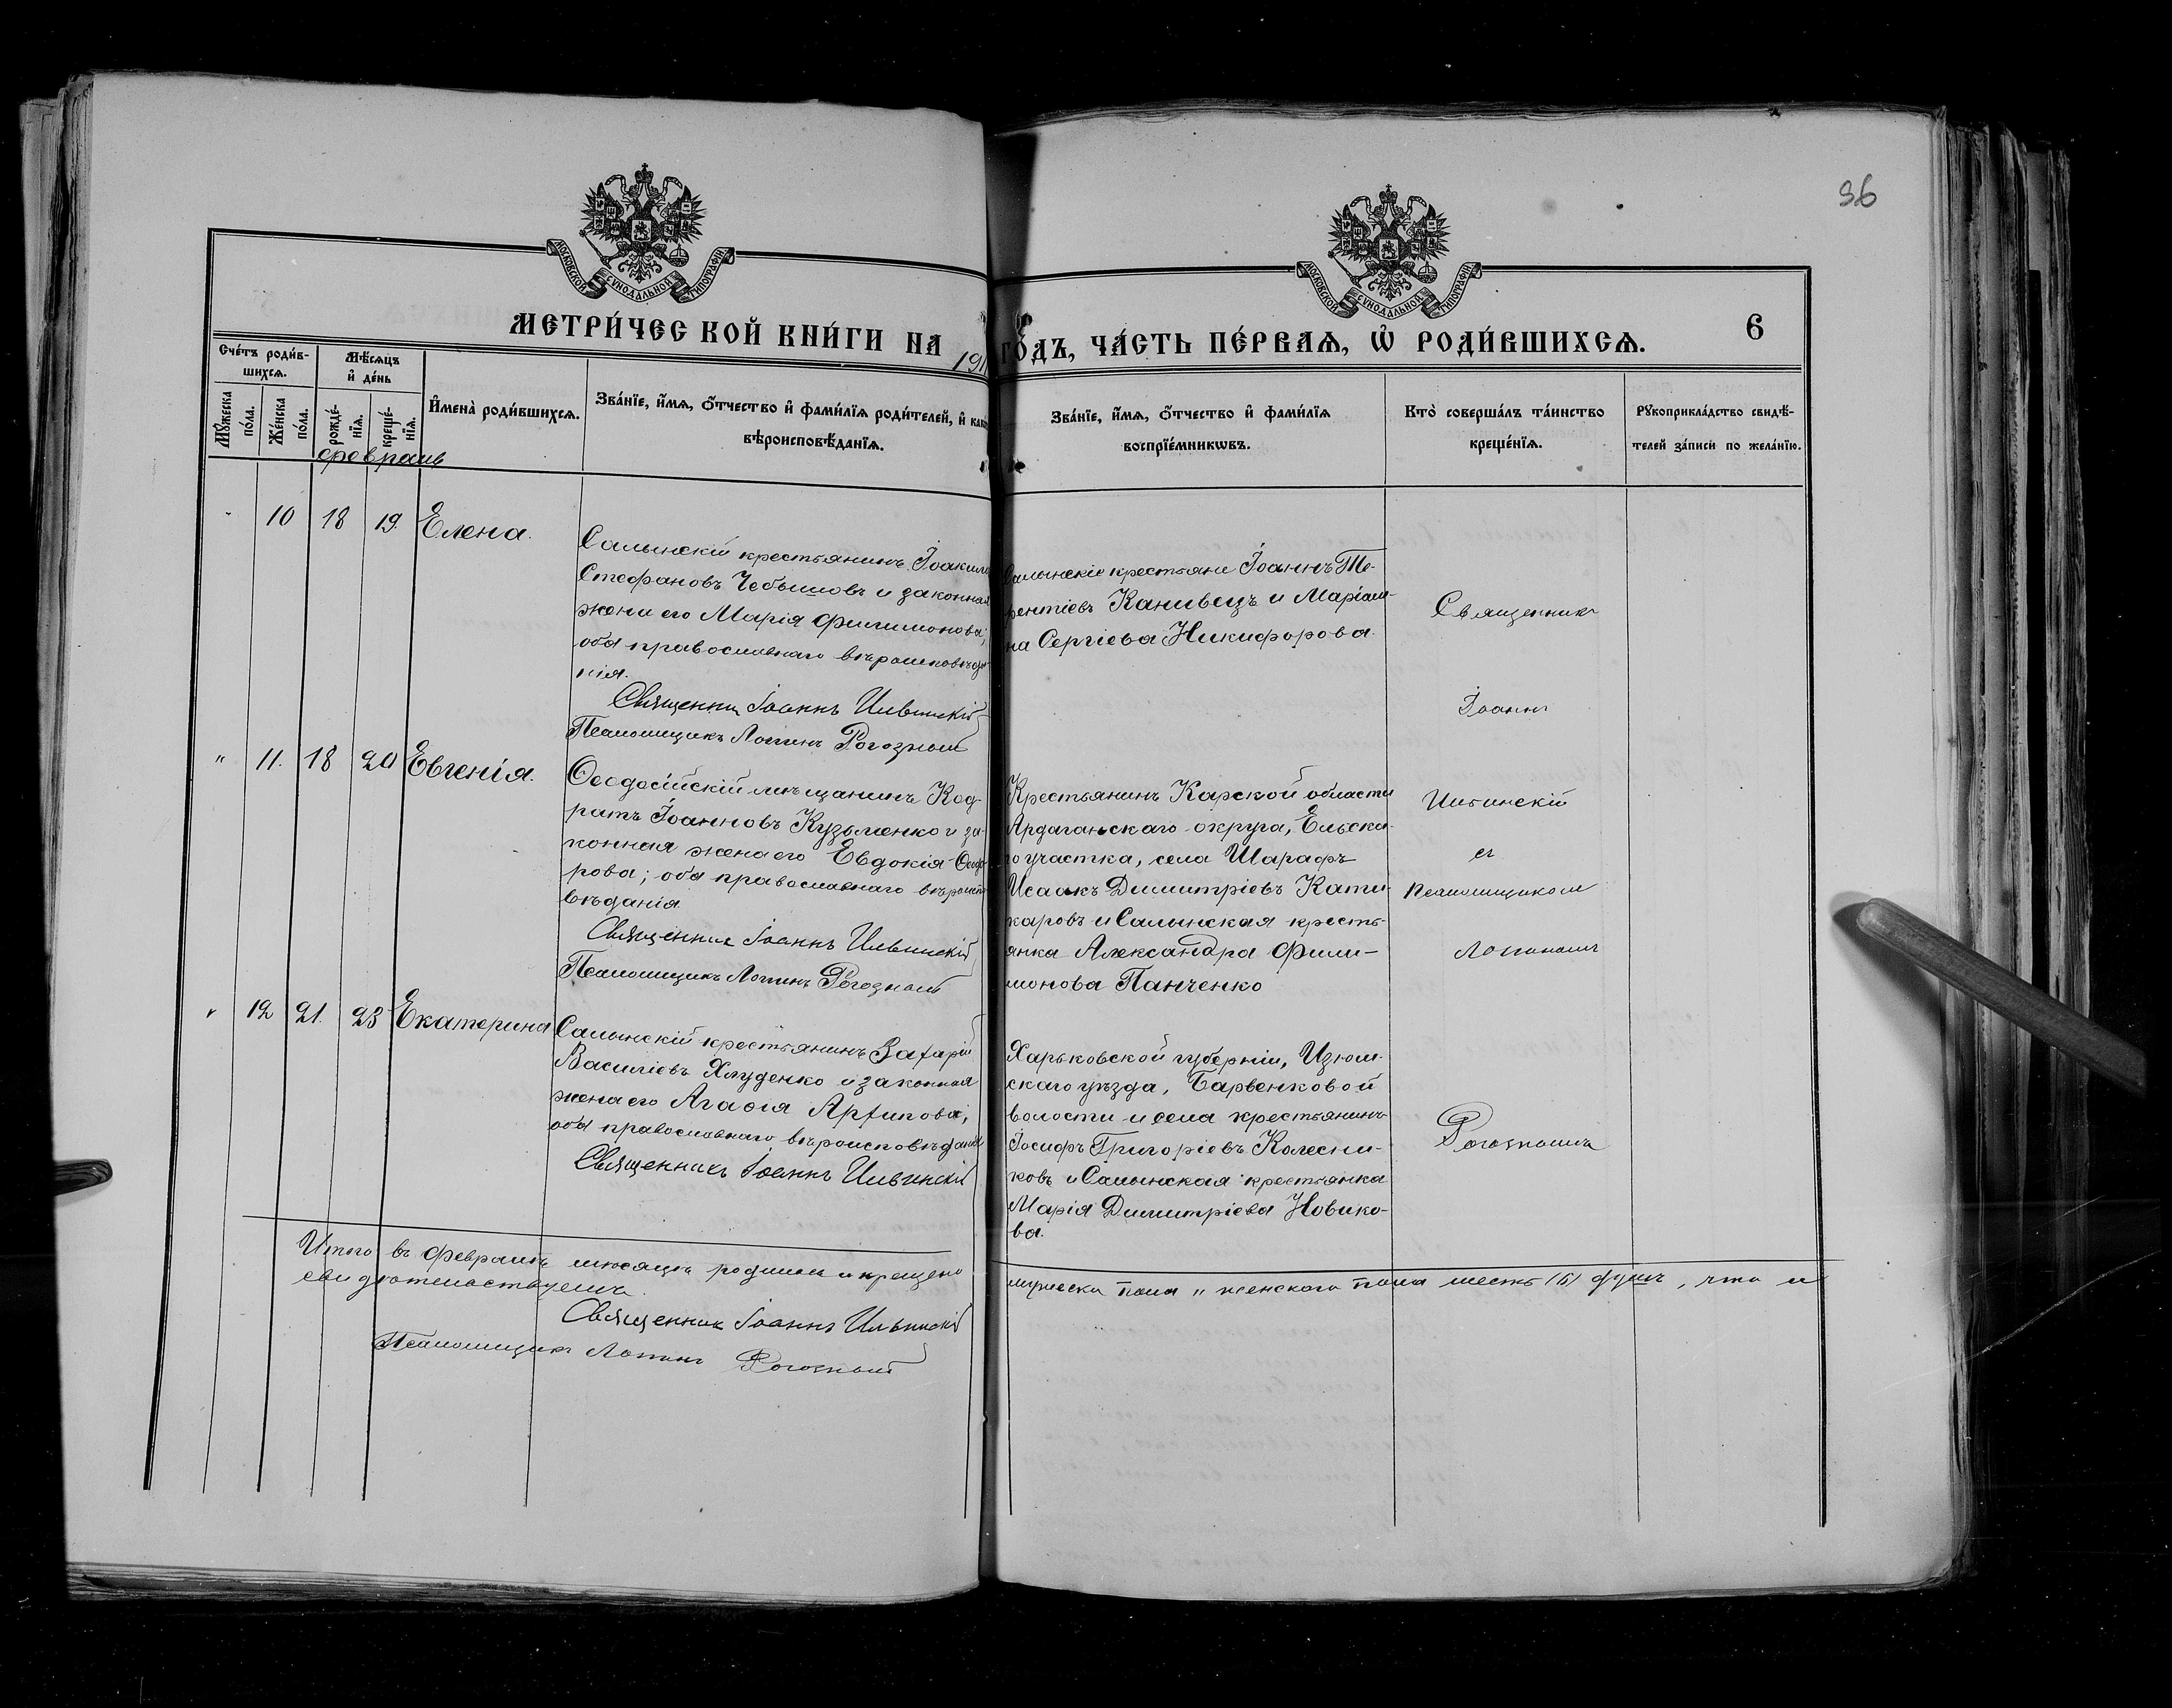 36
МОСКОВСКОЙ СѴНОДАЛЬНОЙ ТИПОГРАФІИ
МОСКОВСКОЙ СѴНОДАЛЬНОЙ ТИПОГРАФІИ
МЕТРИ́ЧЕСКОЙ КНИ́ГИ НА 191
ГО́ДЪ, ЧА́СТЬ ПЕ́РВАѦ, Ѡ҆ РОДИ́ВШИХСѦ.
6
Сче́тъ роди́в-
шихсѧ.
Мѣ́сѧцъ
и҆ де́нь
Мꙋ́жеска по́ла.
Же́нска по́ла.
рожде́-
нїѧ.
креще́-
нїѧ.
И҆мена̀ роди́вшихсѧ.
Зва́нїе, и҆́мѧ, ѻ҆́тчество и҆ фами́лїѧ роди́телей, и҆ како
вѣроисповѣ́данїѧ.
Зва́нїе, и҆́мѧ, ѻ҆́тчество и҆ фами́лїѧ
воспрїе́мникѡвъ.
Кто̀ соверша́лъ та́инство
креще́нїѧ.
Рꙋкоприкла́дство свидѣ́-
телей за́писи по жела́нїю.
февраль
10 18 19. Елена.
Салынскій крестьянинъ Іоакимъ
Стефановъ Чебышовъ и законная
жена его Марія Филимонова;
оба православнаго вѣроисповѣда-
нія.
Священникъ Іоаннъ Ильинскій
Псаломщикъ Логинъ Рогозный
Салынскіе крестьяне Іоаннъ Те-
рентіевъ Канивецъ и Маріам-
на Сергіева Никифорова.
Священникъ
Іоаннъ
" 11. 18 20 Евгенія.
Ѳеодосійскій мѣщанинъ Код-
ратъ Іоанновъ Кузьменко и за-
конная жена его Евдокія Ѳеодо-
рова; оба православнаго вѣроиспо-
вѣданія.
Священникъ Іоаннъ Ильинскій
Псаломщикъ Логинъ Рогозный
Крестьянинъ Карской области
Ардаганьскаго округа,
го участка, села Шарафъ
Исаакъ Димитріевъ Кати-
каровъ и Салынская кресть-
янка Александра Фили-
монова Панченко
Ильинскій
съ
псаломщикомъ
Логиномъ
12 21. 23 Екатерина
Салынскій крестьянинъ Захарій
Василіевъ Хлуденко и законная
жена его Агаѳія Архипова;
оба православнаго вѣроисповѣданія
Священникъ Іоаннъ Ильинскій
Харьковской губерніи, Изюм-
скаго уѣзда, Барвенковой
волости и села крестьянинъ
Іосифъ Григоріевъ Колесни-
ковъ и Салынская крестьянка
Марія Димитріева Новико-
ва.
Рогознымъ
Итого въ февралѣ мѣсяцѣ родилось и крещено
мужеска пола " женскаго пола шесть (6) душъ, что и
свидѣтельствуемъ.
Священникъ Іоаннъ Ильинскій
Псаломщикъ Логинъ Рогозный